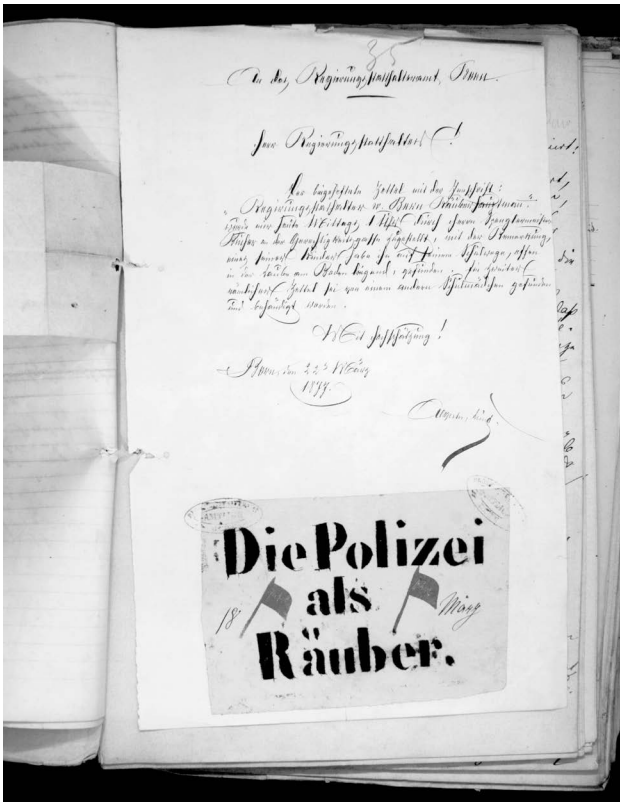 35
An das Regierungsstatthalteramt, Bern.
Herr Regierungsstatthalter!
Der beigeheftete Zettel mit der Inschrift:
"Regierungsstatthalter v. Bern Räuberhauptmann"
wurde mir heute Mittags, 1 Uhr durch Herrn Spenglermeister
an der Gerechtigkeitsgasse zugestellt, mit der Bemerkung,
eines seiner Kinder habe ihn auf seinem Schulwege, offen
in der Laube am Boden liegend, gefunden. Ein zweiter
ähnlicher Zettel sei von einem andern Schulmädchen gefunden
und behändigt worden.
Mit Hochschätzung!
Bern, den 22t März
1877.
Die Polizei
als
18 März
Räuber.